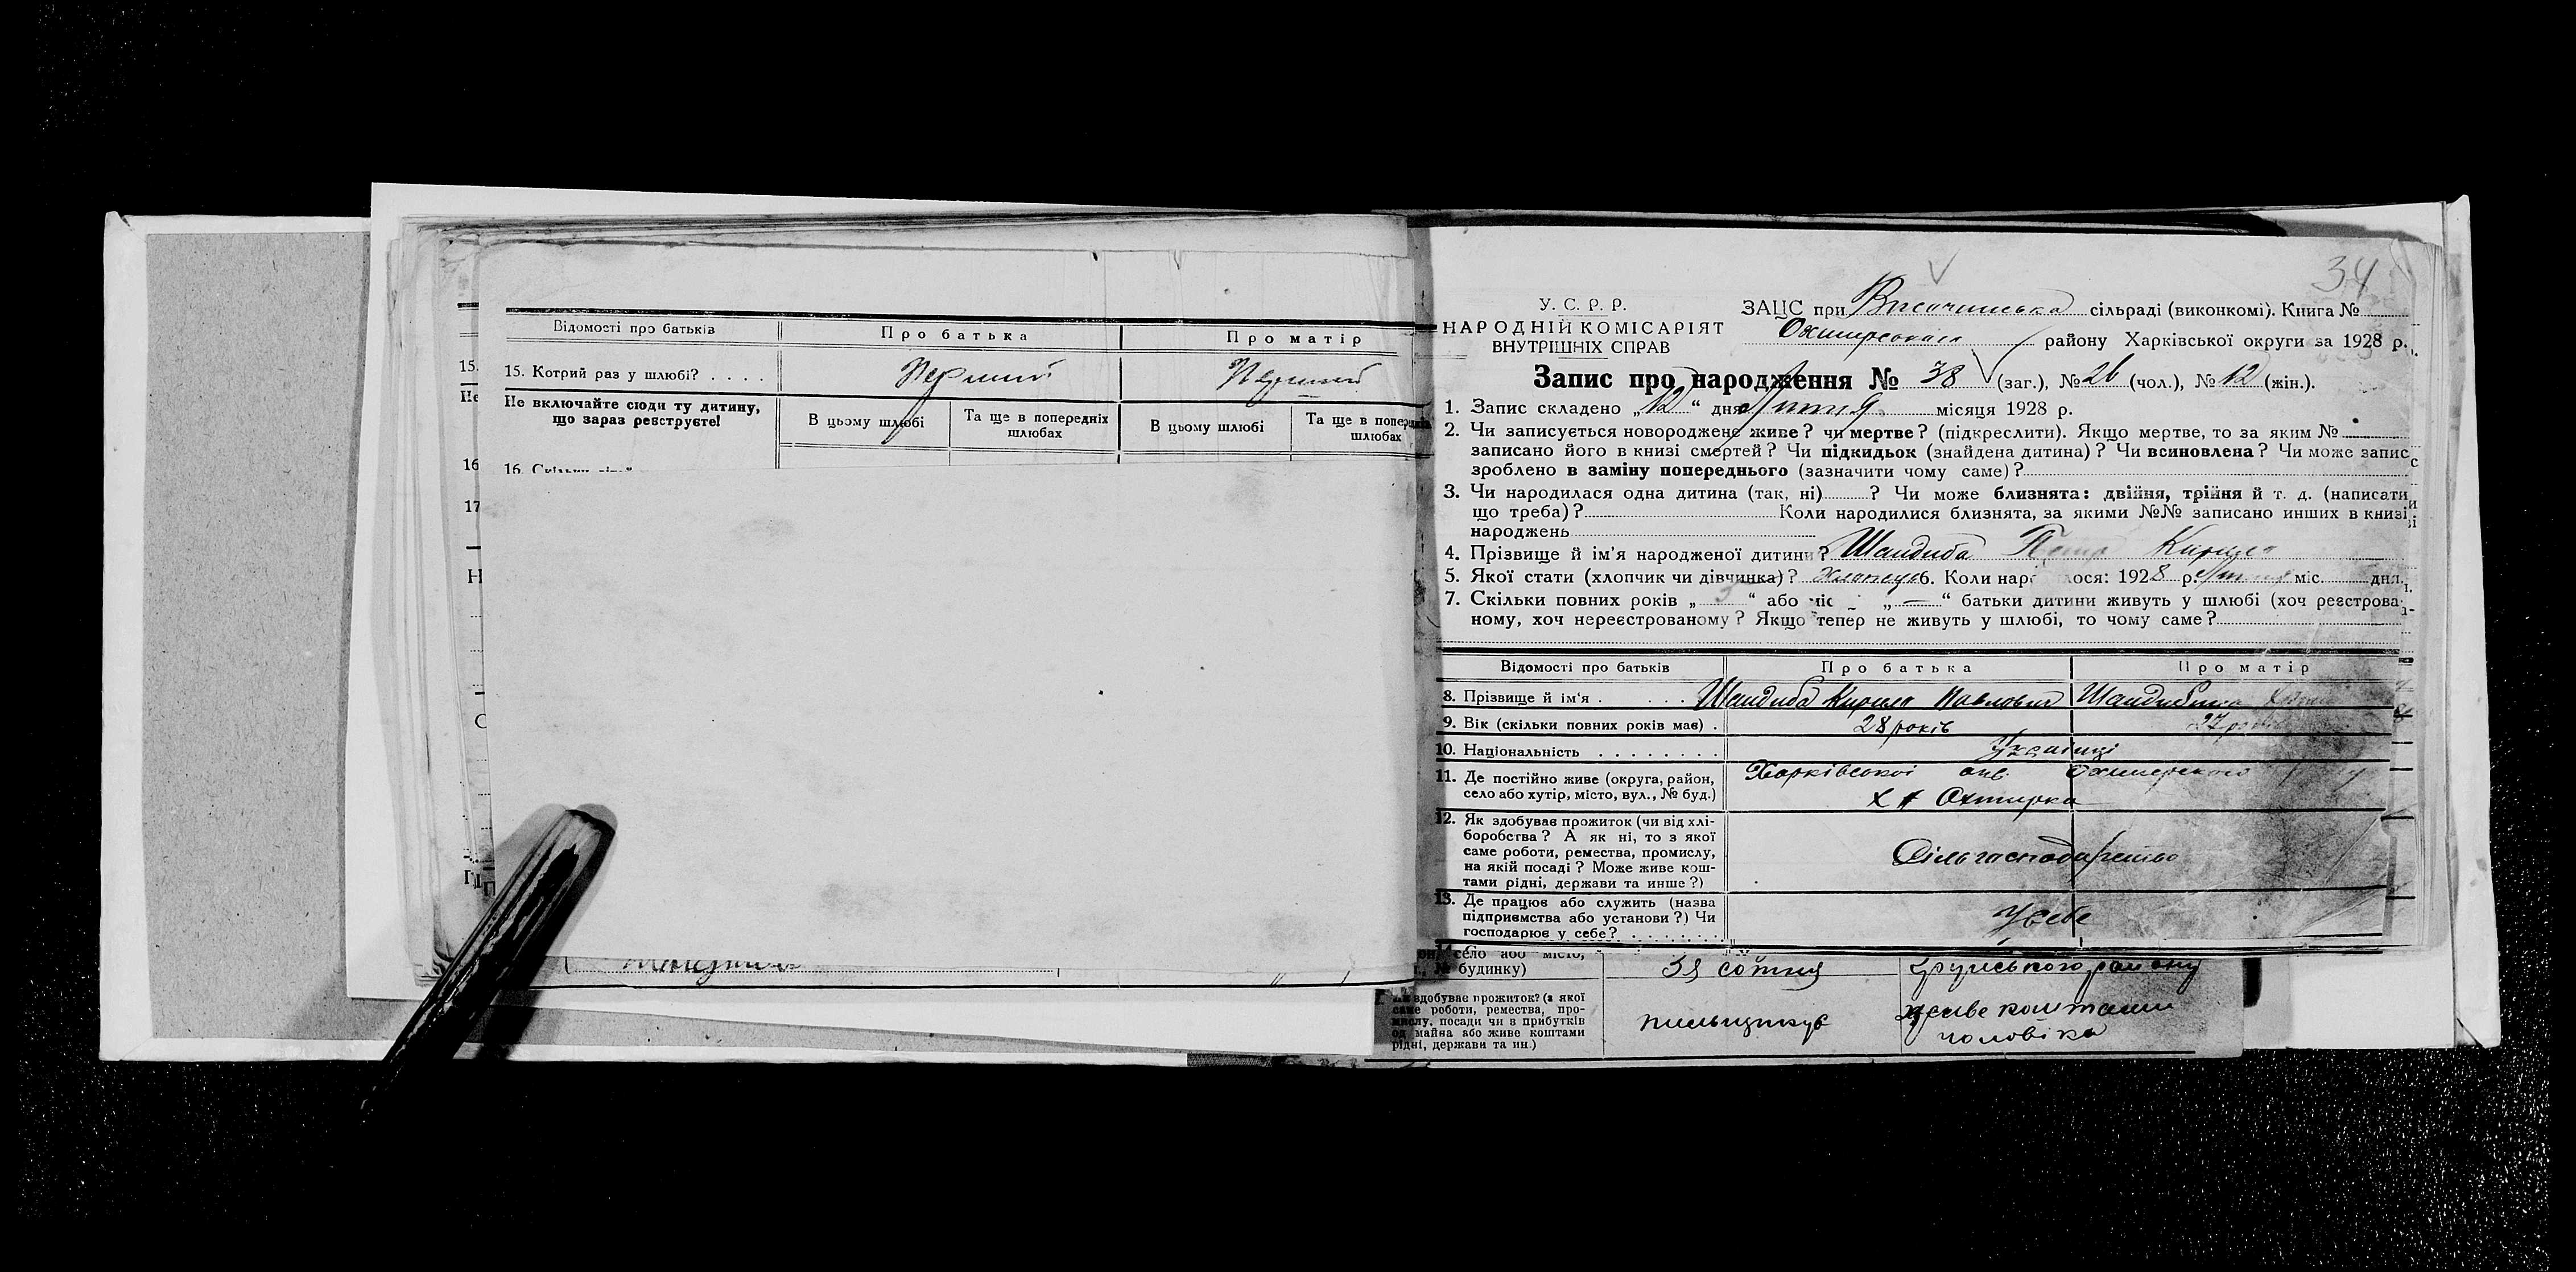 Відомості про батьків
Про батька
Про матір
15. Котрий раз у шлюбі? . . . .
Перший
Перший
Не включайте сюди ту дитину,
що зараз реєструєте!
В цьому шлюбі
Та ще в попередніх
шлюбах
В цьому шлюбі
шлюбах
15.
16
17
34
У. С. Р. Р.
НАРОДНІЙ КОМІСАРІЯТ
ВНУТРІШНІХ СПРАВ
ЗАЦС при сільраді (виконкомі). Книга №
району Харківської округи за 1928 р.
Запис про народження № 38 (заг.), № 26 (чол.), № 12 (жін.).
1. Запис складено „12“ дня Липня місяця 1928 р.
2. Чи записується новороджене живе? чи мертве? (підкреслити). Якщо мертве, то за яким №
записано його в книзі смертей? Чи підкидьок (знайдена дитина)? Чи всиновлена? Чи може запис
зроблено в заміну попереднього (зазначити чому саме)?
3. Чи народилася одна дитина (так, ні) ? Чи може близнята: двійня, трійня й т. д. (написати
що треба)? Коли народилися близнята, за якими №№ записано инших в книзі
народжень
4. Прізвище й ім'я народженої дитини? Шандиба
5. Якої стати (хлопчик чи дівчинка)? 6. Коли 1928 р. міс. дня.
7. Скільки повних років „ 3 “ або „ — “ батьки дитини живуть у шлюбі (хоч реєстрова-
ному, хоч нереєстрованому? Якщо тепер не живуть у шлюбі, то чому саме?
Відомості про батьків
Про батька
Про матір
8. Прізвище й ім'я . . . . .
Шандиба Кирило Павлович
9. Вік (скільки повних років має) .
28 років
27
10. Національність . . . . . . . .
Українці
11. Де постійно живе (округа, район,
село або хутір, місто, вул., № буд.)
Харківської окр. Охтирського
Охтирка
12. Як здобуває прожиток (чи від хлі-
боробства? А як ні, то з якої
саме роботи, ремества, промислу,
на якій посаді? Може живе кош-
тами рідні, держави та инше?)
Сільгосподарство
13. Де працює або служить (назва
підприємства або установи?) Чи
господарює у себе? . . . . . . .
У себе
село або місто,
будинку)
38 сотня
району
здобуває прожиток? (з якої
саме роботи, ремества, про-
мислу, посади чи з прибутків
од майна або живе коштами
рідні, держави та ин.)
живе коштами
чоловіка